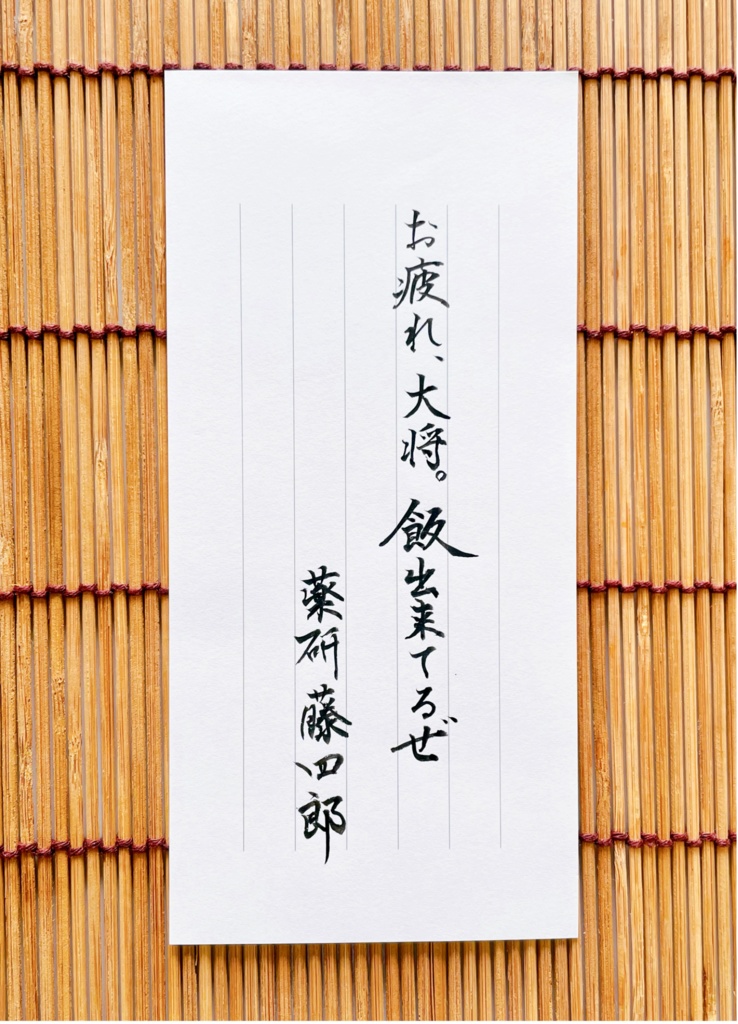 お疲れ、大将。飯出来てるぜ
薬研藤四郎